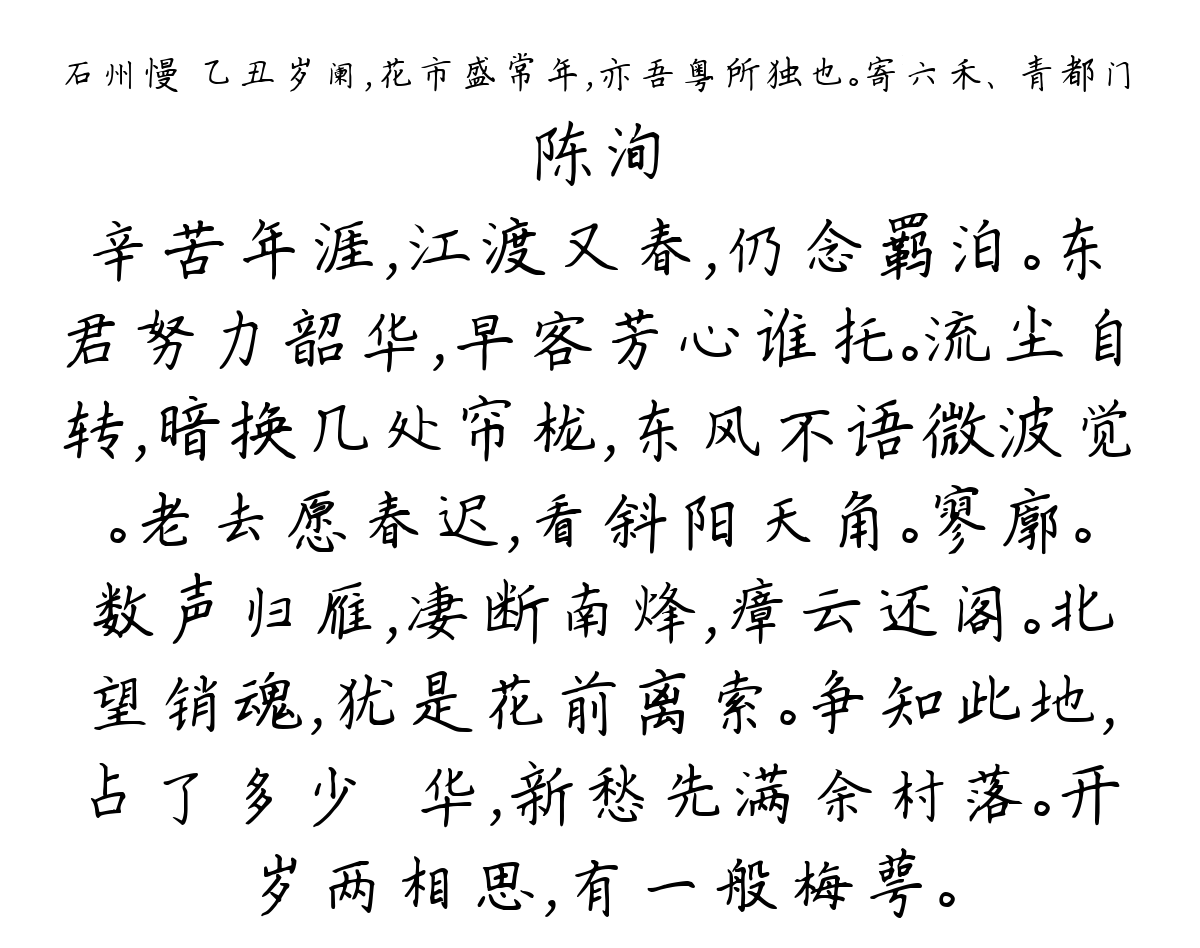 石州慢 乙丑岁阑,花市盛常年,亦吾粤所独也。寄六禾、青都门
陈洵
辛苦年涯,江渡又春,仍念羁泊。东
君努力韶华,早客芳心谁托。流尘自
转,暗换几处帘栊,东风不语微波觉
。老去愿春迟,看斜阳天角。寥廓。
数声归雁,凄断南烽,瘴云还阁。北
望销魂,犹是花前离索。争知此地,
占了多少 华,新愁先满余村落。开
岁两相思,有一般梅萼。